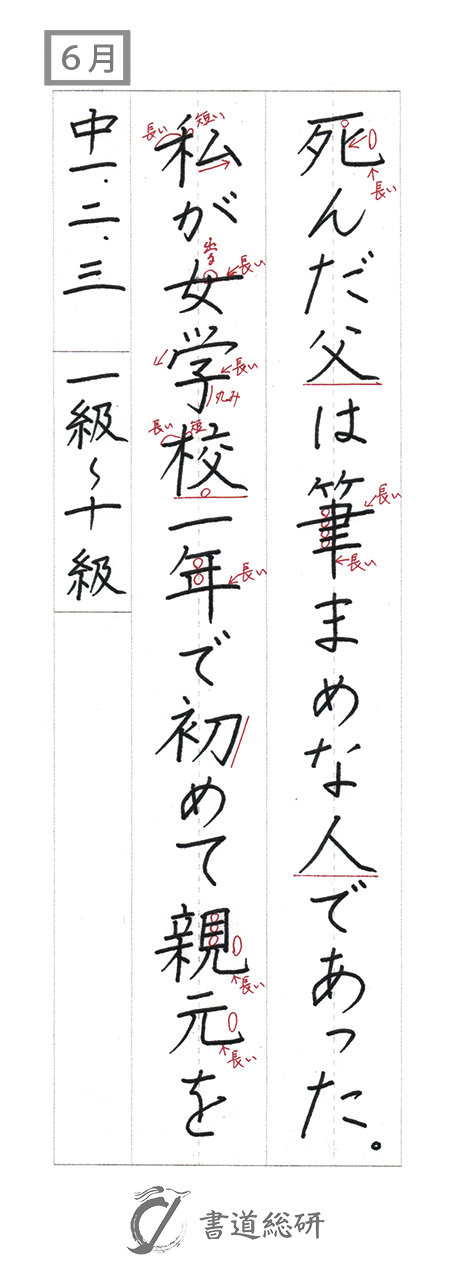 6月
死んだ父は筆まめな人であった。
私が女学校一年で初めて親元を
中一、二、三 一級～十級
長い
長い
長い
長い
短い
出る
長い
長い
丸み
長い
短
長い
長い
長い
書道総研